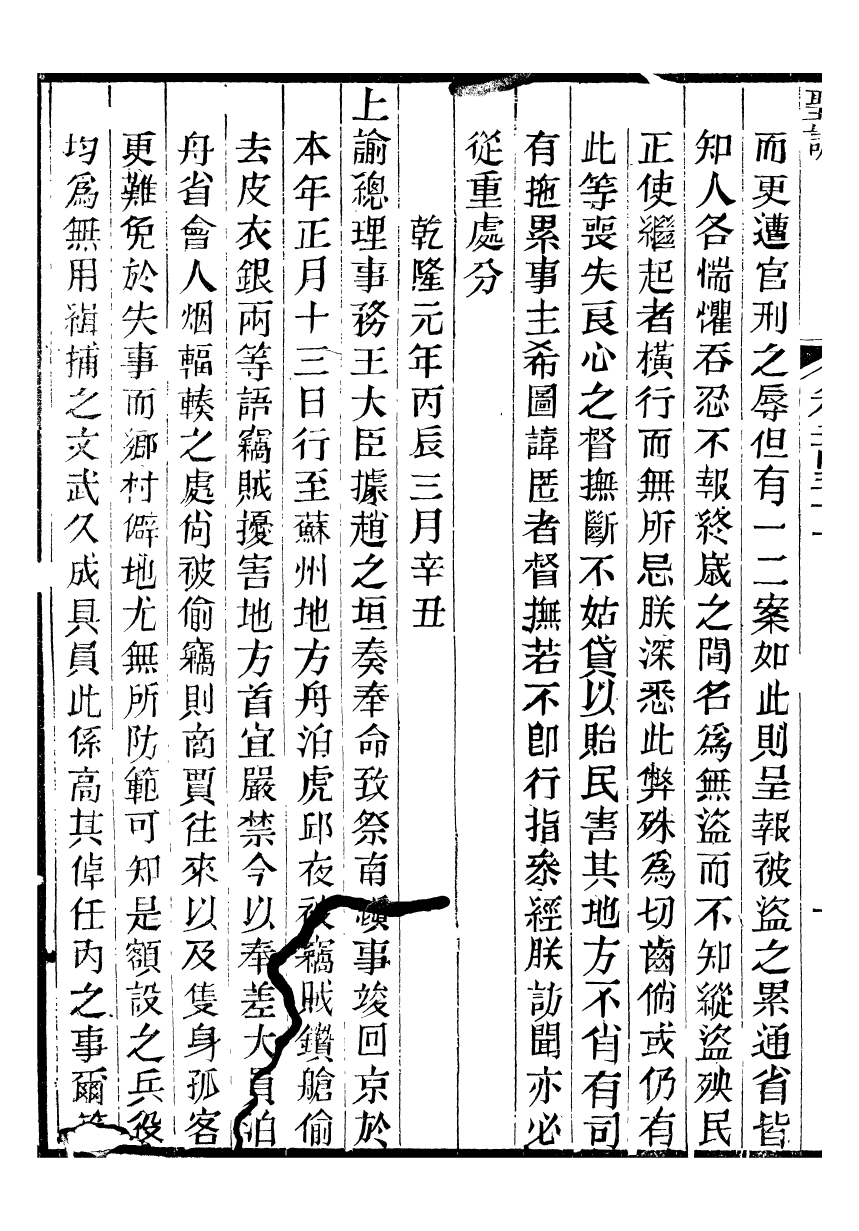 聖訓
而更遭官刑之辱但有一二案如此則呈報被盜之累通省皆
知人各惴懼吞忍不報終歲之間名爲無盜而不知縱盜殃民
正使繼起者橫行而無所忌朕深悉此弊殊爲切齒倘或仍有
此等喪失良心之督撫斷不姑貸以貽民害其地方不肖有司
有拖累事主希圖諱匿者督撫若不卽行指叅經朕訪聞亦必
從重處分
乾隆元年丙辰三月辛丑
上諭總理事務王大臣據趙之垣奏奉命致祭南鎮事竣回京於
本年正月十三日行至蘇州地方舟泊虎邱夜被竊賊鑽艙偷
去皮衣銀兩等語竊賊擾害地方首宜嚴禁今以奉差大員泊
舟省會人烟輻輳之處尙被偷竊則商賈往來以及隻身孤客
更難免於失事而鄉村僻地尤無所防範可知是額設之兵役
均爲無用緝捕之文武久成具員此係高其倬任內之事爾等